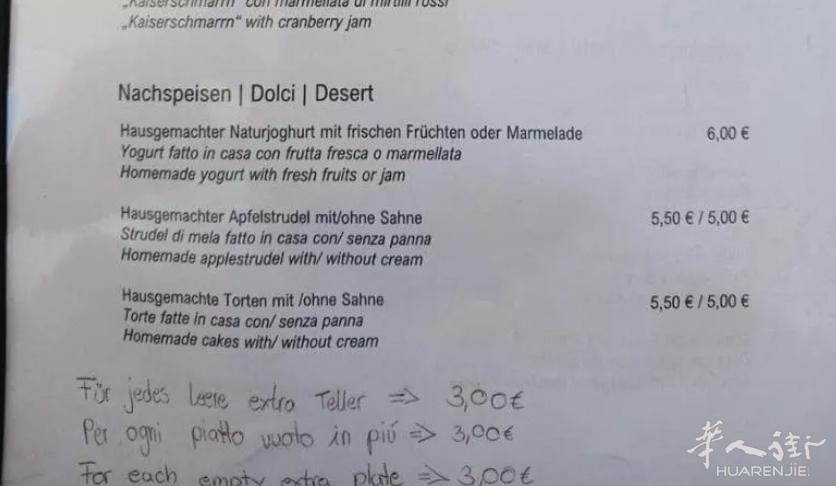 „Kaiserschmarrn“ con marmellata di mirtilli rossi
„Kaiserschmarrn“ with cranberry jam
Nachspeisen | Dolci | Desert
Hausgemachter Naturjoghurt mit frischen Früchten oder Marmelade 6,00 €
Yogurt fatto in casa con frutta fresca o marmellata
Homemade yogurt with fresh fruits or jam
Hausgemachter Apfelstrudel mit/ohne Sahne 5,50 € / 5,00 €
Strudel di mela fatto in casa con/ senza panna
Homemade applestrudel with/ without cream
Hausgemachte Torten mit /ohne Sahne 5,50 € / 5,00 €
Torte fatte in casa con/ senza panna
Homemade cakes with/ without cream
Für jedes leere extra Teller => 3,00€
Per ogni piatto vuoto in piú => 3,00€
For each empty extra plate => 3,00€
华人街
HUARENJIE